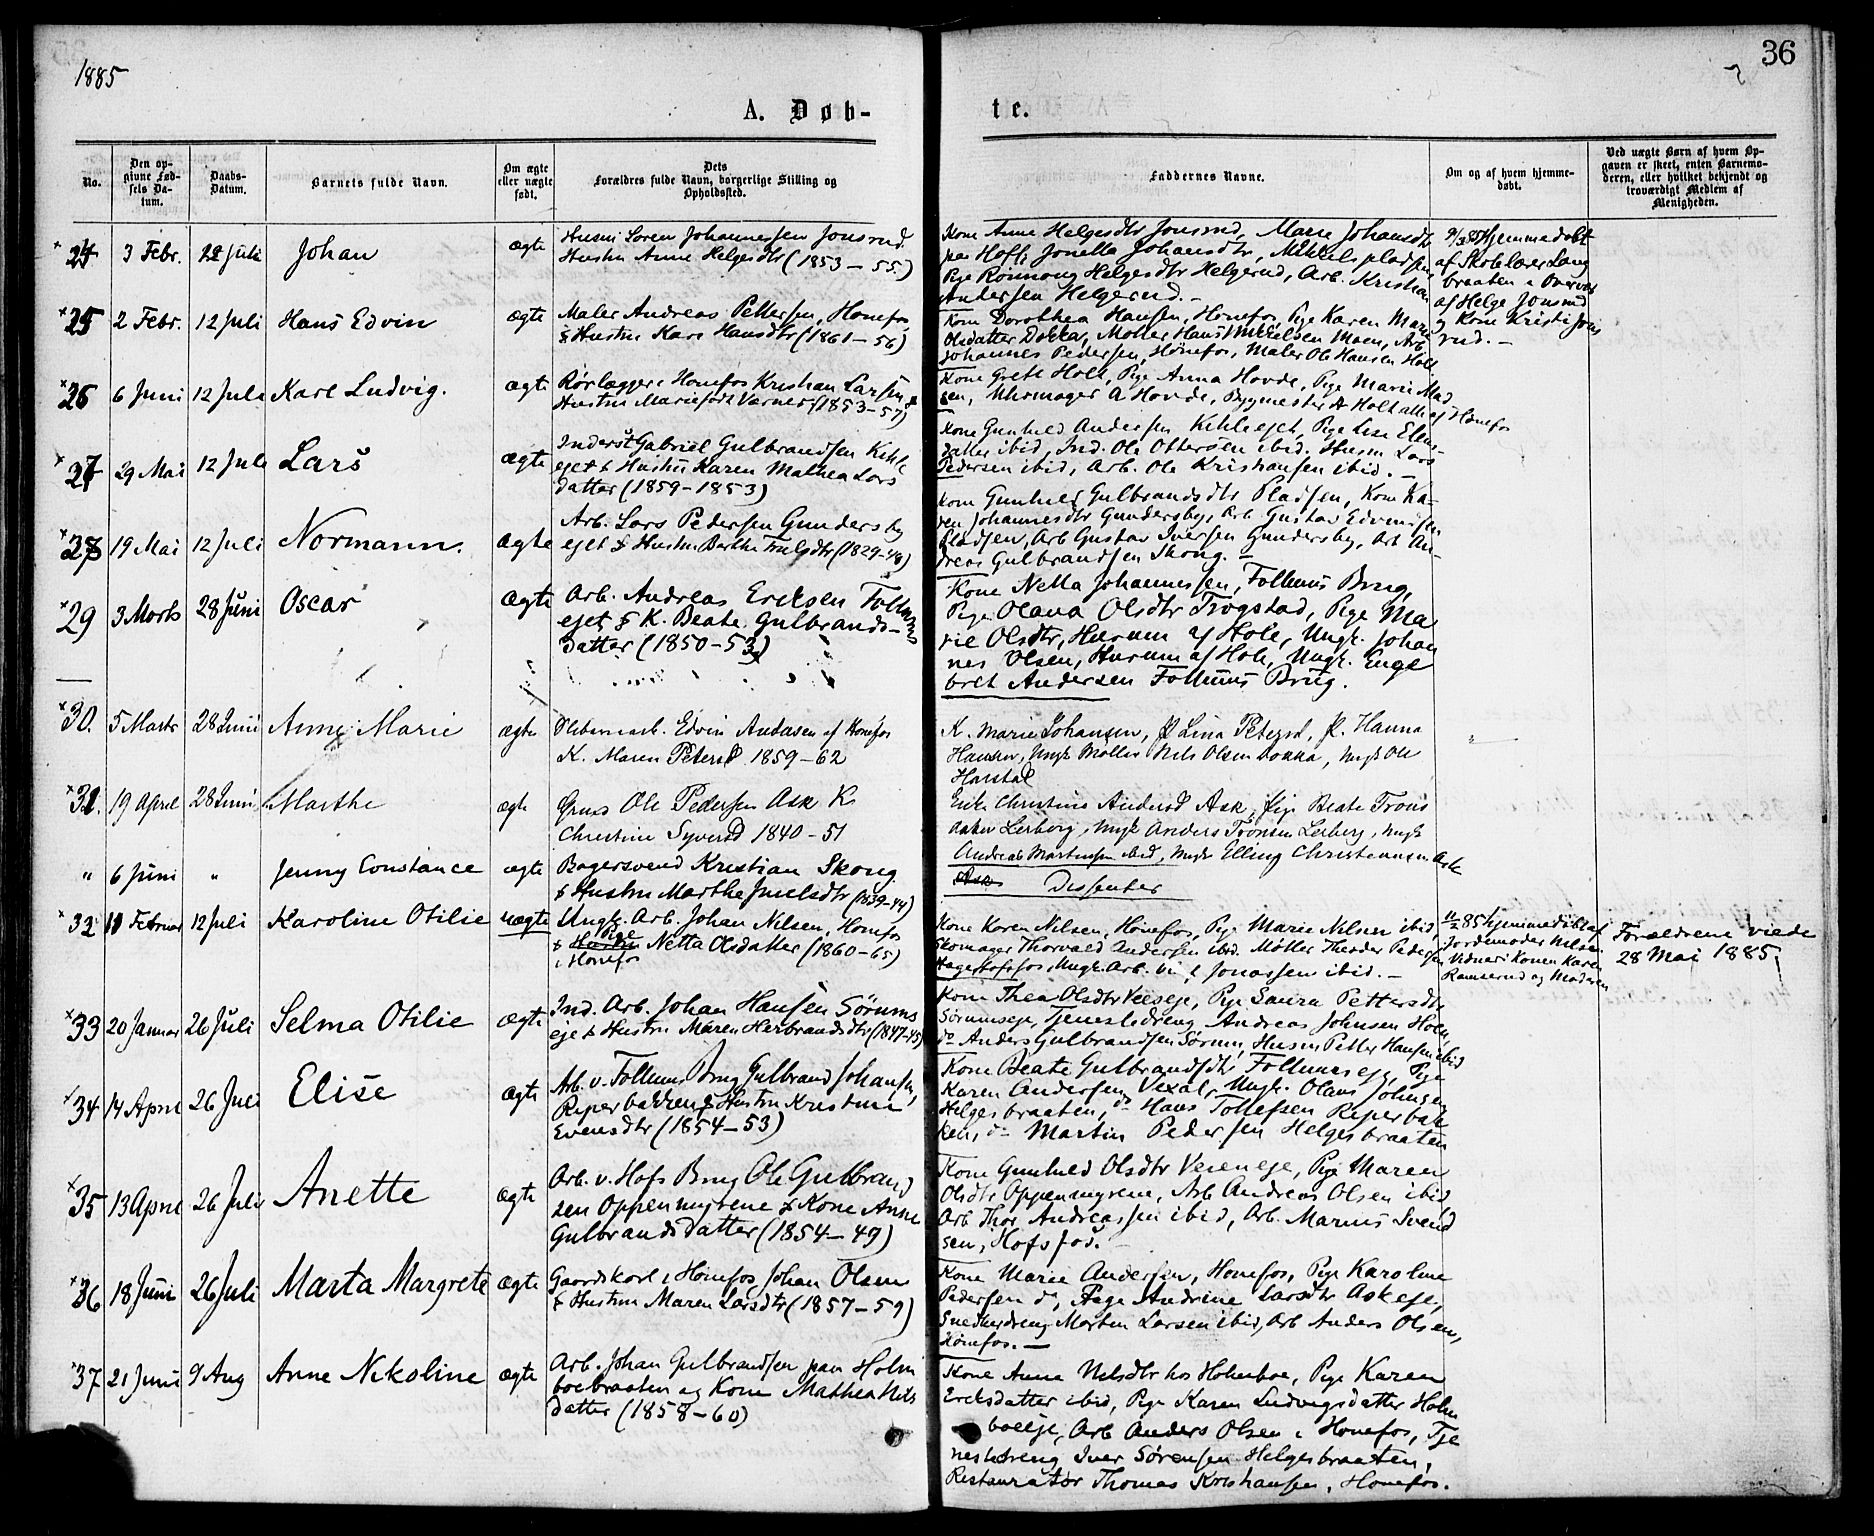 1885
36
A. Døb-
te.
No.
Den op-
givne Fød-
sels Da-
tum.
Daabs-
Datum.
Barnets fulde Navn.
Om ægte
eller uægte
født.
Dets
Forældres fulde Navn, borgerlige Stilling og
Opholdssted.
Faddernes Navne.
Om og af hvem hjemme-
døbt.
Ved uægte Børn af hvem Op-
gaven er skeet, enten Barnemo-
deren, eller hvilket bekjendt og
troværdigt Medlem af
Menigheden.
24 3 Febr. Juli Johan ægte
Husm Søren Johannessen Jonsrud.
Hustru Anne Helgesdtr (1853-55)
Kone Anne Helgesdtr Jonsrud, Marie Johansdtr
paa Hoff, Jonella Johansdtr,
Pige Rønnoug Helgesdtr Helgerud, Arb. Kristian
Andersen Helgerud.-
Hjemmedøbt
af Skolelærer Lang
braaten
af Helge Jonsrud
og Kone Kristi Jons
rud.-
25 2 Febr. 12 Juli Hans Edvin ægte
Maler Andreas Pettersen, Hønefos
& Hustru Kari Hansdtr (1861-56)
Kone Dorothea Hansen, Hønefos, Pige Karen Marie
Olsdatter Dokka, Møller Hans Mikkelsen Moen, Arb
Johannes Pedersen, Hønefos, Maler Ole Hansen Holt
26 6 Juni 12 Juli Karl Ludvig. ægte
Rørlægger i Hønefos Kristian Larsen &
Hustru Marie født Værner (1853-57)
Kone Grethe Holt, Pige Anna Hovde, Pige Marie Mad
sen, Uhrmager A Hovde, Bygmester A Holt alle af Hønefos
27 29 Mai 12 Juli Lars ægte
Inderst Gabriel Gulbrandsen Kihle
ejet & Hustru Karen Mathea Lars
datter (1859-1853)
Kone Gunhild Andersen Kihleejet, Pige Lise Elens-
datter ibid, Ind. Ole Ottersen ibid. Husm Lars
Pedersen ibid, Arb. Ole Kristiansen ibid.-
28 19 Mai 12 Juli Normann. ægte
Arb. Lars Pedersen Gundersby
ejet & Hustru Berthe Trulsdtr (1829-48)
Kone Gunhild Gulbrandsdtr Pladsen, Kone Ka-
ren Johannesdtr Gundersby, Arb Gustav Edvinsen
Pladsen, Arb Gustav Iversen Gundersby, Arb An-
dreas Gulbrandsen Skoug.-
29 3 Marts 28 Juni Oscar ægte
Arb. Andreas Eriksen Follums
ejet & K. Beate Gulbrands-
datter (1850-53)
Kone Netta Johannessen, Follums Brug,
Pige Olava Olsdtr Trøgstad, Pige Ma
rie Olsdtr, Hurum af Hole, Ungk. Johan
nes Olsen, Hurum af Hole, Ungk. Engel
bret Andersen Follums Brug.
30. 5 Marts 28 Juni Anne Marie ægte
Sliberiarb. Edvin Andersen af Hønefos
K. Maren Petersd 1859-62
K. Marie Johansen, P Lina Petersd, P. Hanna
Hansen, Ungk Møller Nils Olsen Dokka, Ungk Ole
Harstad
31. 19 April 28 Juni Marthe ægte
Ole Pedersen Ask K
Christine Syversd 1840-51
Enke Christine Andersd Ask, Pige Beate Trons
Lerberg, Ungk Anders Tronsen Lerberg, Ungk
Andreas Martinsen ibid, Ungk Elling Christiansen Ask
" 6 Juni " Jenny Constance ægte
Bagersvend Kristian Skoug
& Hustru Marthe Juulsdtr (1839-44)
Ask Dissenter
32 11 Februar 12 Juli Karoline Otilie uægte
Ungk. Arb. Johan Nilsen, Hønefos
& Hustru Pige Netta Olsdatter (1860-65)
i Hønefos
Kone Karen Nilsen, Hønefos, Pige Marie Nilsen ibid,
Skomager Thorvald Andersen ibid. Møller Theodor Pedersen
Ungk. Arb. Jonassen ibid.-
85 hjemmedøbt af
Jordemoder Nilsen
Vidner: Konen Karen
Ramserud og Moderen
Forældrene viede
28 Mai 1885.
33 20 Januar 26 Juli Selma Otilie ægte
Ind. Arb. Johan Hansen Sørums
eje & Hustru Maren Herbrandsdtr (1847-45)
Kone Thea Olsdtr Veseje, Pige Laura Pettersdtr
Sørumseje, Tjenestedreng Andreas Johnsen Hoen,
do Anders Gulbrandsen Sørum, Husm Petter Hansen ibid
34 14 April 26 Juli Elise ægte
Arb. v. Follums Brug Gulbrand Johansen,
Reperbakken & Hustru Kristine
Evensdtr (1854-53)
Kone Beate Gulbrandsdtr Follumseje, Pige
Karen Andersen Vexal, Ungk. Olaus Johnsen
Helgesbraaten, do Hans Tollefsen Reperbak
ken, do Martin Pedersen Helgesbraaten
35 13 April 26 Juli Anette ægte
Arb. v. Hofs Brug Ole Gulbrand
sen Oppenmyrene & Kone Anne
Gulbrandsdatter (1854-49)
Kone Gunhild Olsdtr Veseneje, Pige Maren
Olsdtr Oppenmyrene, Arb Andreas Olsen ibid,
Arb Thor Andreassen ibid, Arb. Marius Svend
sen, Hofsfos.-
36 18 Juni 26 Juli Marta Margrete ægte
Gaardskarl i Hønefos Johan Olsen
& Hustru Maren Larsdtr (1857-59)
Kone Marie Andersen, Hønefos, Pige Karoline
Pedersen do, Pige Andrine Larsdtr Askeje,
Snedkerdreng Morten Larsen ibid, Arb Anders Olsen,
Hønefos.-
37 21 Juni 9 Aug Anne Nikoline ægte
Arb. Johan Gulbrandsen paa Holm
boebraaten og Kone Mathea Nils
datter (1858-60)
Kone Anne Nilsdtr hos Holmboe, Pige Karen
Eriksdatter ibid, Pige Karen Ludvigsdatter Holm
boeeje, Arb Anders Olsen i Hønefos, Tje
nestedreng Iver Sørensen Helgesbraaten,
Restauratør Thomas Kristiansen, Hønefos.